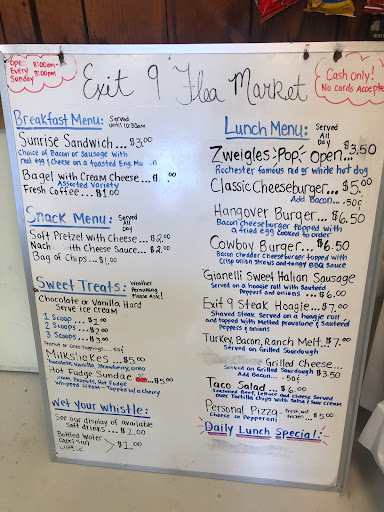 Open 8:00am-
Every 3:00pm
Sunday
Exit 9 Flea Market
Cash Only!
No cards Accepted
Breakfast Menu: Served until 10:30am
Sunrise Sandwich... $3.00
Choice of Bacon or Sausage with
real egg & cheese on a toasted Eng. Muffin
Bagel with Cream Cheese...
Assorted Variety
Fresh Coffee... $1.00
Snack Menu: Served All Day
Soft Pretzel with Cheese... $2.00
Nach with Cheese Sauce... $2.00
Bag of Chips... $1.00
Sweet Treats: Weather Permitting Please Ask!
Chocolate or Vanilla Hard
Serve Ice cream
1 Scoop
2 Scoops
3 Scoops
Peanut or Oreo Toppings... 50¢
Milkshakes... $5.00
Chocolate, Vanilla, Strawberry, Oreo
Hot Fudge Sundae $5.00
Peanuts, Hot Fudge
Whipped Cream - Topped w/ cherry
Wet your whistle:
See our display of available
Soft drinks... $2.00
Bottled Water
$1.00
Lunch Menu: Served All Day
Zweigles "Pop" Open.. $3.50
Rochester famous red or white hot dog
Classic Cheeseburger... $5.00
Add Bacon.. .50¢
Hangover Burger... $6.50
Bacon cheeseburger topped with
a fried egg cooked to order
Cowboy Burger... $6.50
Bacon cheddar cheeseburger topped with
Crisp onion straws and tangy BBQ Sauce
Gianelli Sweet Italian Sausage
Served on a hoagie roll with Sauteed
Peppers and onions ... $6.00
Exit 9 Steak Hoagie... $7.00
Shaved Steak Served on a hoagie roll
and topped with Melted Provolone & Sauteed
Peppers & onions
Turkey, Bacon, Ranch Melt.. $7.00
Served on Grilled Sourdough
Grilled Cheese...
Served on Grilled Sourdough $3.50
Add Bacon... .50¢
Taco Salad... $6.00
Seasoned Beef, Lettuce and cheese Served
over Tortilla chips with Salsa & Sour cream
Personal Pizza
Cheese or Pepperoni
Daily Lunch Special: